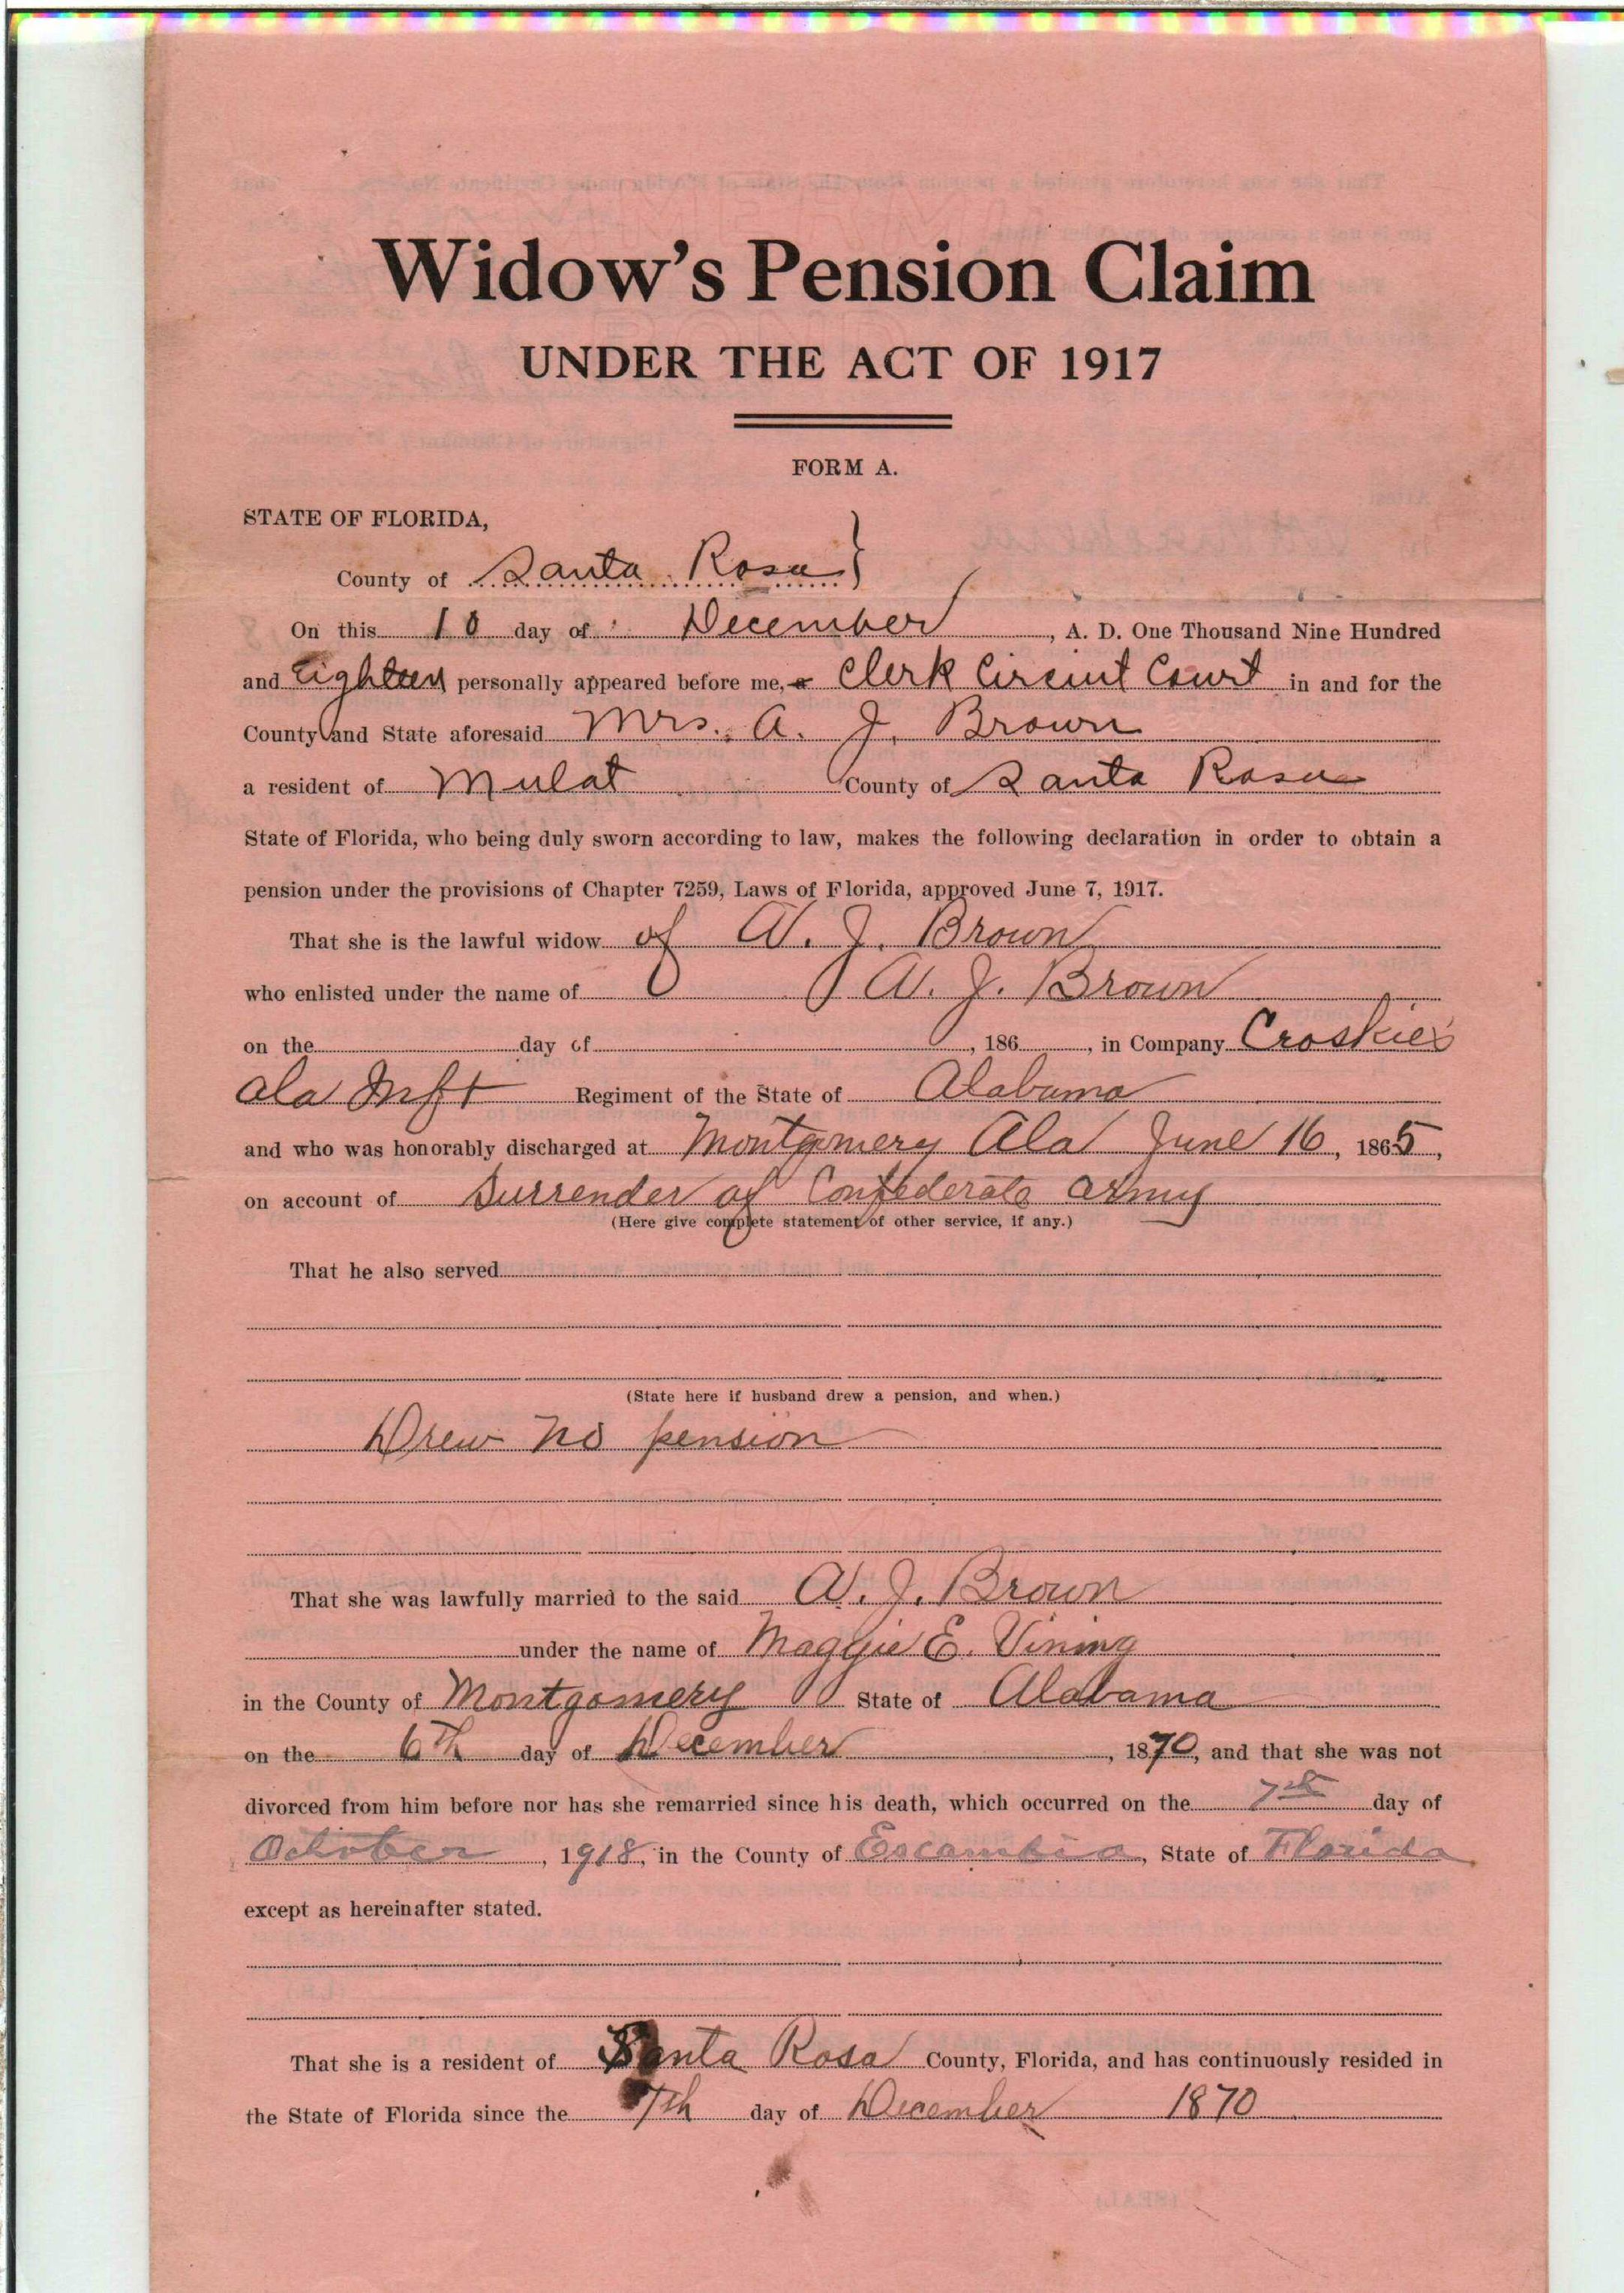 Widow's Pension Claim
UNDER THE ACT OF 1917
FORM A.
STATE OF FLORIDA,
County of Santa Rosa }
On this 10 day of December, A. D. One Thousand Nine Hundred
and Eighteen personally appeared before me, a Clerk Circuit Court in and for the
County and State aforesaid Mrs. A. J. Brown
a resident of Mulat County of Santa Rosa
State of Florida, who being duly sworn according to law, makes the following declaration in order to obtain a
pension under the provisions of Chapter 7259, Laws of Florida, approved June 7, 1917.
That she is the lawful widow of A. J. Brown
who enlisted under the name of A. J. Brown
on the day of , 186 , in Company Croskies
Ala Inft Regiment of the State of Alabama
and who was honorably discharged at Montgomery Ala June 16, 1865,
on account of Surrender of Confederate Army
(Here give complete statement of other service, if any.)
That he also served
(State here if husband drew a pension, and when.)
Drew no pension
That she was lawfully married to the said A. J. Brown
under the name of Maggie E. Vining
in the County of Montgomery State of Alabama
on the 6th day of December, 1870, and that she was not
divorced from him before nor has she remarried since his death, which occurred on the 7th day of
October, 1918, in the County of Escambia, State of Florida
except as hereinafter stated.
That she is a resident of Santa Rosa County, Florida, and has continuously resided in
the State of Florida since the 7th day of December 1870